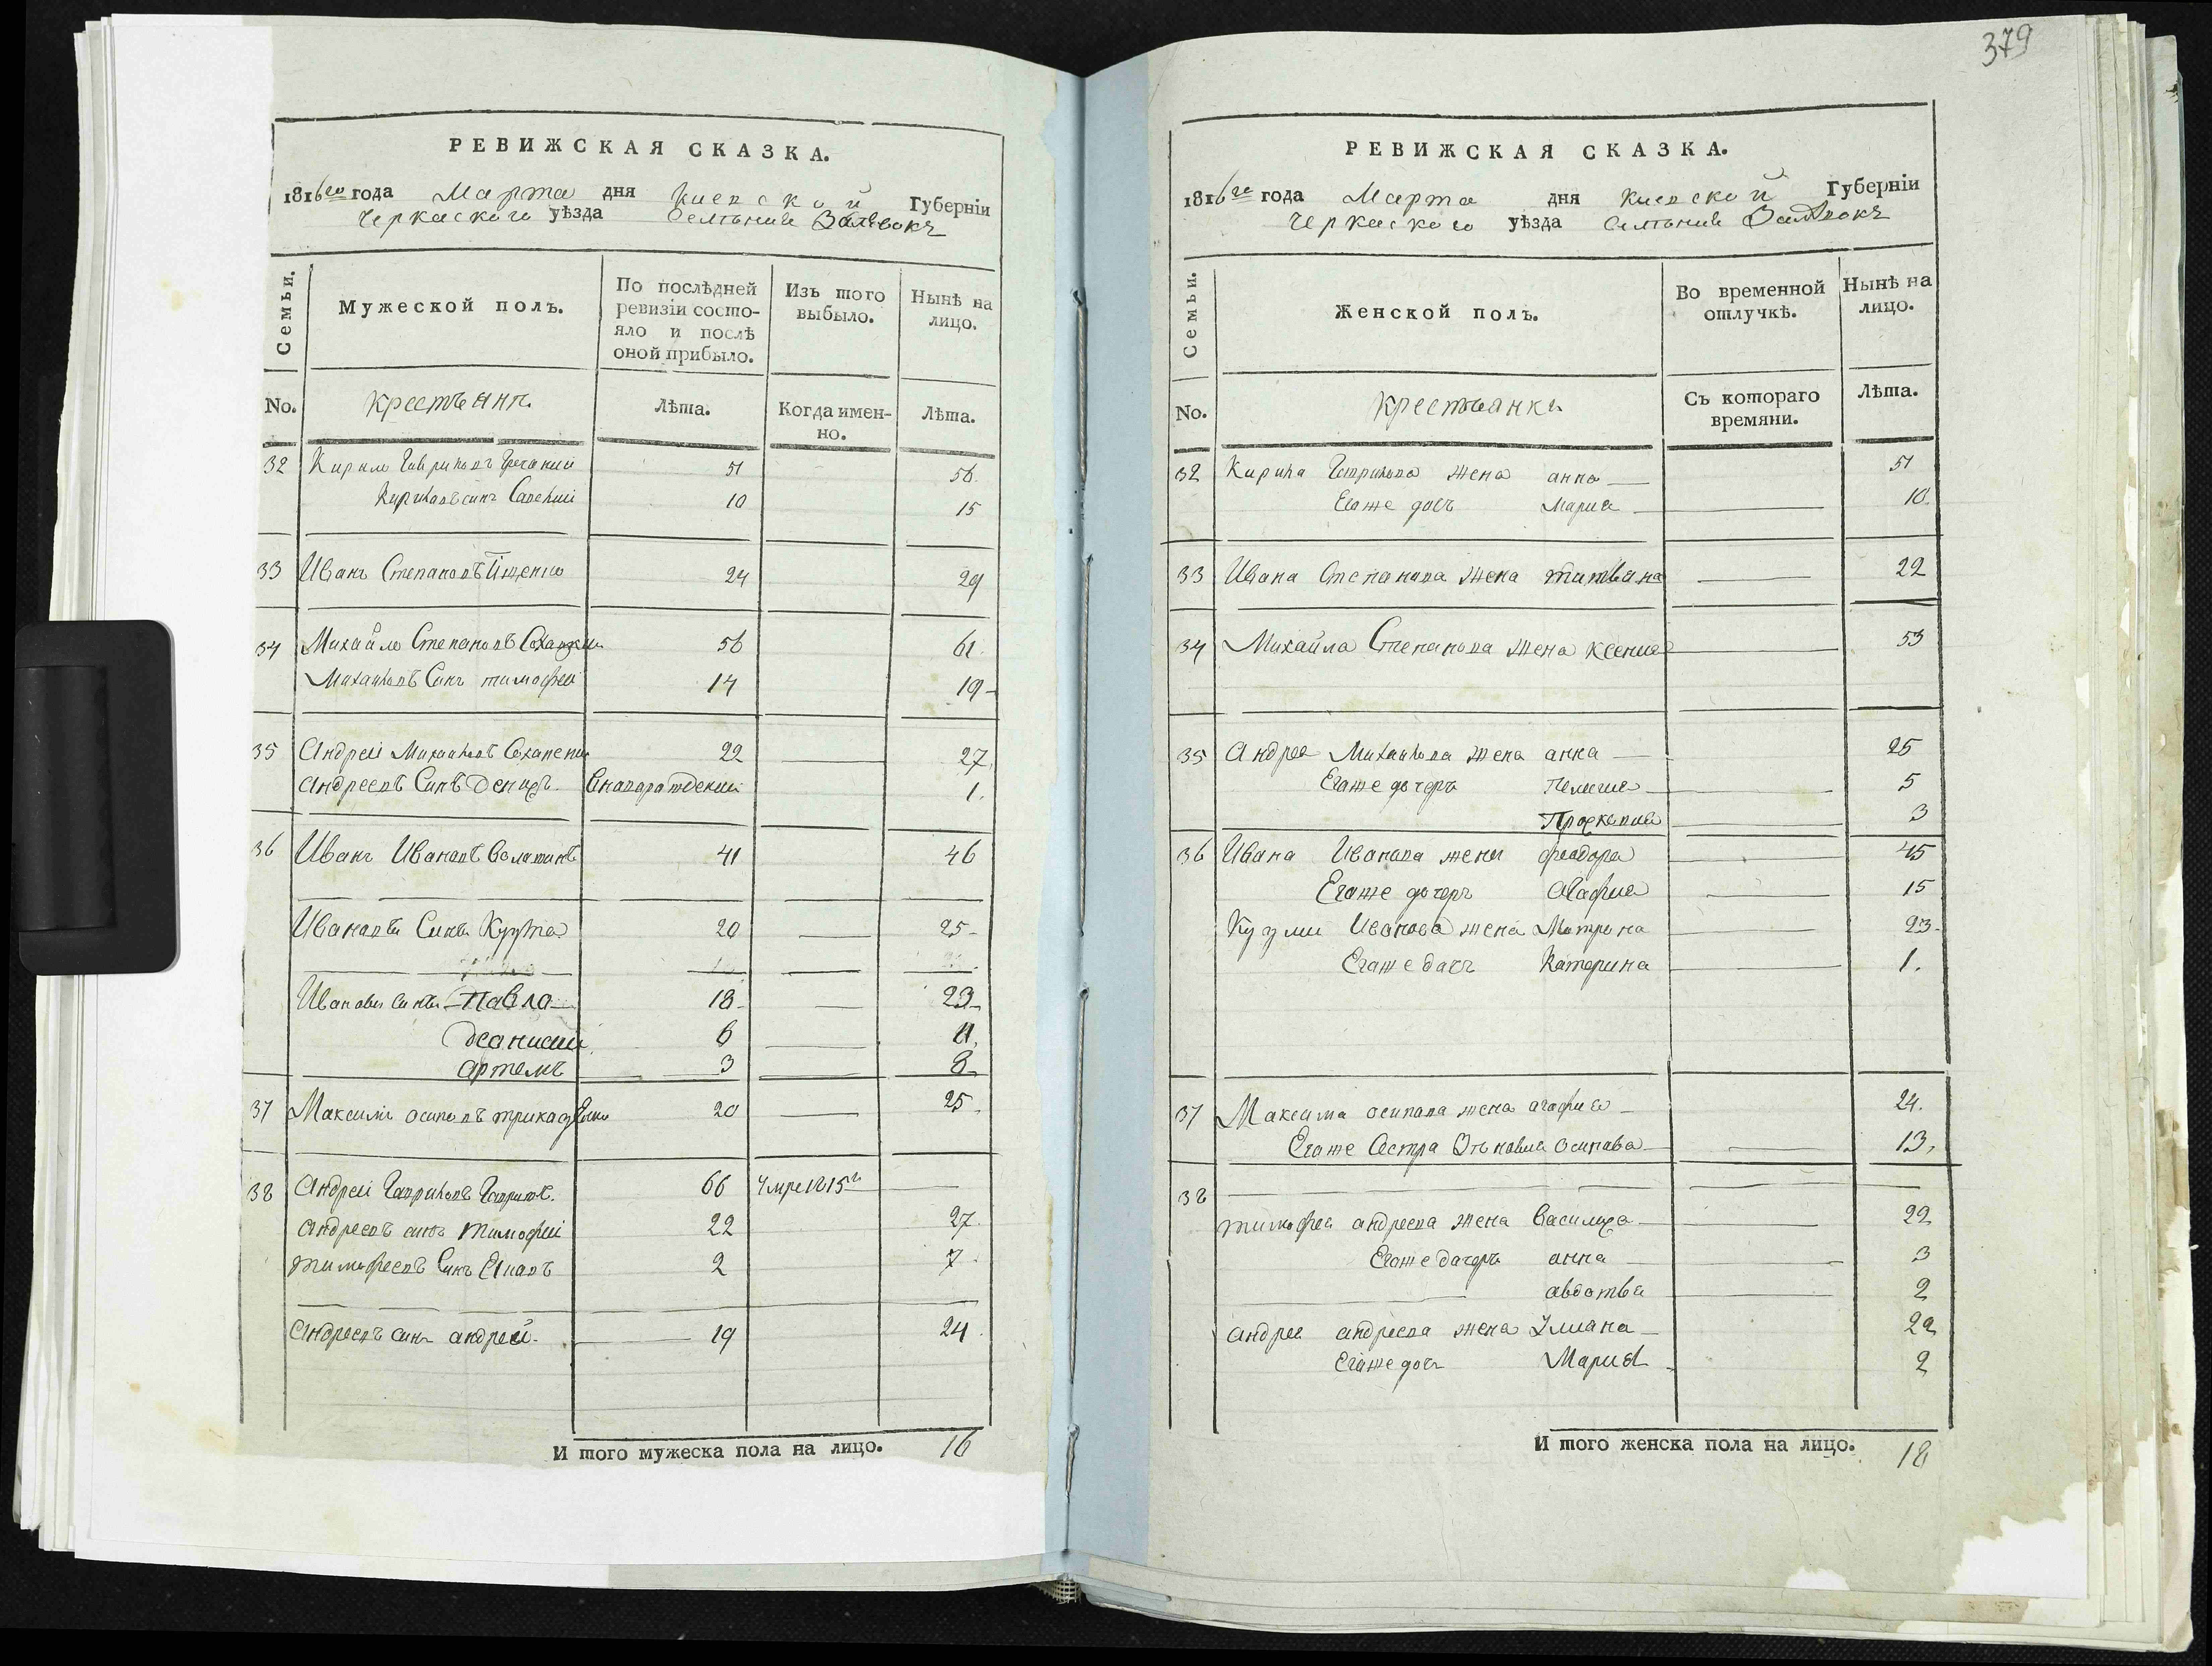 379
РЕВИЖСКАЯ СКАЗКА.
1816го года Марта дня Киевской Губерніи
Черкаского уѣзда Селѣнии
Семьи.
Мужеской полъ.
По послѣдней ревизіи состояло и послѣ оной прибыло.
Изъ того выбыло.
Нынѣ на лицо.
No.
Крестьянѣ
Лѣта.
Когда именно.
Лѣта.
32 Кирило Гавриловъ 51 56.
Кириловъ синъ Савелий 10 15
33 Иванъ Степановъ Іщенко 24 29
34 Михайло Степановъ 56 61.
Михаиловъ Синъ тимофей 14 19
35 Андрей Михаиловъ 22 27.
Андреевъ Синъ Денисъ 1.
36 Иванъ Ивановъ 41 46
Ивановы Сины Кузма 20 25
Ивановы Сины Павло 18 23
Деанисий 6 11.
артемъ 3 8
37 Максимъ осиповъ 20 25.
38 Андрей Гавриловъ 66 Умре 1815г
Андреевъ синъ Тимофей 22 27.
тимофеевъ Синъ 2 7
Андреевъ синъ андрей 19 24.
И того мужеска пола на лицо. 16
РЕВИЖСКАЯ СКАЗКА.
1816го года Марта дня Киевской Губерніи
Черкаского уѣзда Селѣнии
Семьи.
Женской полъ.
Во временной отлучкѣ.
Нынѣ на лицо.
No.
Крестьянки
Съ котораго времяни.
Лѣта.
32 Кирила Гаврилова жена анна 51
Егоже дочь Мария 10.
33 Ивана Степанова жена татьяна 22
34 Михайла Степанова жена Ксения 53
35 Андрея Михаилова жена анна 25
Егоже дочеръ Пелагия 5
Проскапия 3
36 Ивана Иванова жена феодора 45
Егоже дочеръ Агафия 15
Кузми Иванова жена Матрона 23.
Егоже дачъ Катерина 1.
37 Максима осипова жена агафия 24.
Егоже Сестра осипова 13.
38
тимофея андреева жена Василиса 22
Егоже дачеръ анна 3
авдотья 2
андрея андреева жена Улиана
Егоже дочъ Мария 2
И того женска пола на лицо. 18